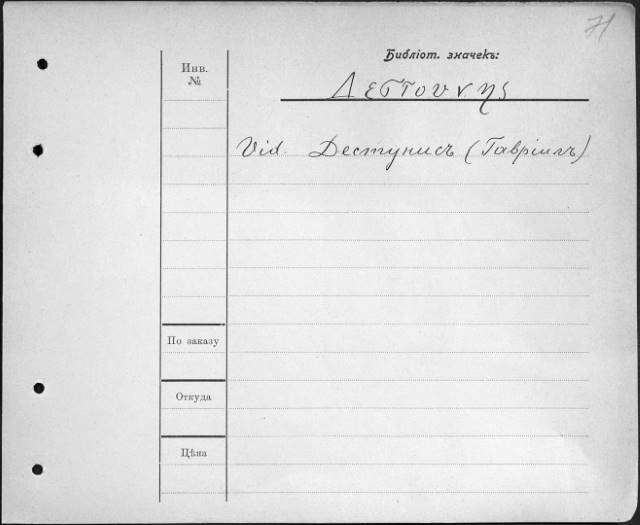 71
Библіот. значекъ:
Инв.
№
Δεστουνης
Vid. Дестунисъ (Гавріилъ)
По заказу
Откуда
Цѣна